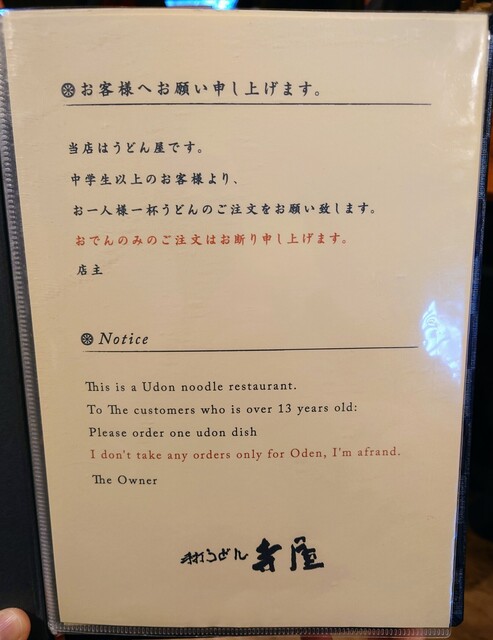 お客様へお願い申し上げます。
当店はうどん屋です。
中学生以上のお客様より、
お一人様一杯うどんのご注文をお願い致します。
おでんのみのご注文はお断り申し上げます。
店主
Notice
This is a Udon noodle restaurant.
To The customers who is over 13 years old:
Please order one udon dish
I don't take any orders only for Oden, I'm afrand.
The Owner
手打うどん 寺屋